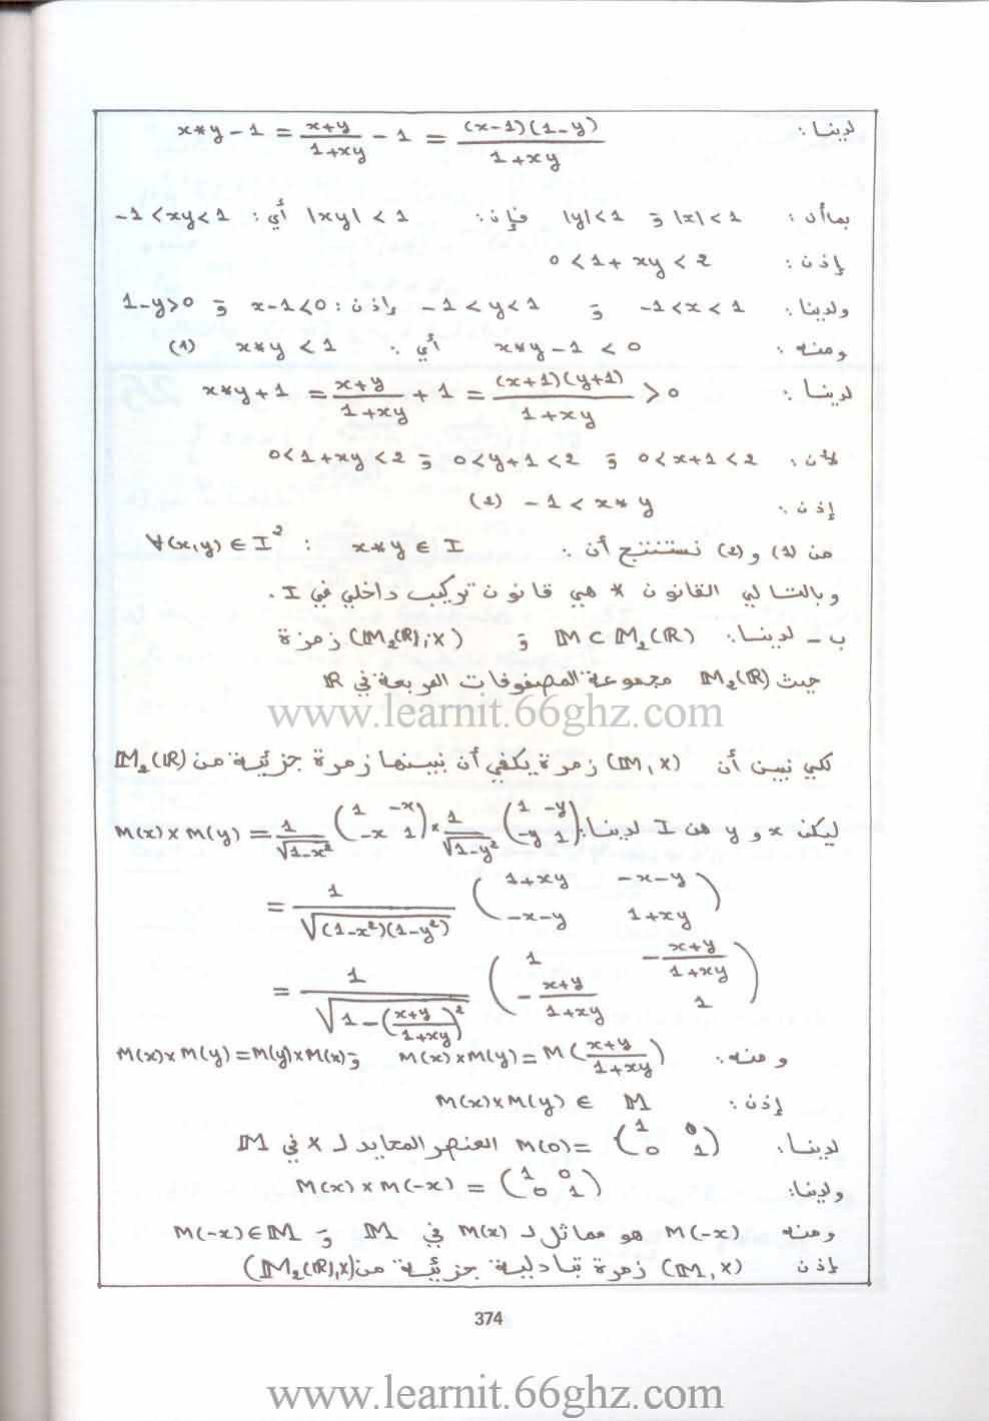 لدينا: x*y - 1 = \frac{x+y}{1+xy} - 1 = \frac{(x-1)(1-y)}{1+xy}
بما أن: |x|<1 و |y|<1 فإن: |xy| < 1 أي: -1<xy<1
إذن: 0 < 1 + xy < 2
ولدينا: -1<x<1 و -1<y<1 إذن: x-1<0 و 1-y>0
ومنه: x*y - 1 < 0 أي: x*y < 1 (1)
لدينا: x*y + 1 = \frac{x+y}{1+xy} + 1 = \frac{(x+1)(y+1)}{1+xy} > 0
لأن: 0<x+1<2 و 0<y+1<2 و 0<1+xy<2
إذن: -1 < x*y (2)
من (1) و (2) نستنتج أن: ∀(x,y) ∈ I² : x*y ∈ I
وبالتالي القانون * هي قانون تركيب داخلي في I.
ب - لدينا: 𝕄 ⊂ 𝕄₂(ℝ) و (𝕄₂(ℝ); ×) زمرة
حيث 𝕄₂(ℝ) مجموعة المصفوفات المربعة في ℝ
www.learnit.66ghz.com
لكي نبين أن (𝕄, ×) زمرة يكفي أن نبينها زمرة جزئية من 𝕄₂(ℝ)
ليكن x و y من I لدينا: M(x)×M(y) = \frac{1}{\sqrt{1-x²}} \begin{pmatrix} 1 & -x \\ -x & 1 \end{pmatrix} × \frac{1}{\sqrt{1-y²}} \begin{pmatrix} 1 & -y \\ -y & 1 \end{pmatrix}
= \frac{1}{\sqrt{(1-x²)(1-y²)}} \begin{pmatrix} 1+xy & -x-y \\ -x-y & 1+xy \end{pmatrix}
= \frac{1}{\sqrt{1-(\frac{x+y}{1+xy})²}} \begin{pmatrix} 1 & -\frac{x+y}{1+xy} \\ -\frac{x+y}{1+xy} & 1 \end{pmatrix}
ومنه: M(x)×M(y) = M(\frac{x+y}{1+xy}) و M(x)×M(y)=M(y)×M(x)
إذن: M(x)×M(y) ∈ 𝕄
لدينا: M(0) = \begin{pmatrix} 1 & 0 \\ 0 & 1 \end{pmatrix} العنصر المحايد لـ × في 𝕄
ولدينا: M(x)×M(-x) = \begin{pmatrix} 1 & 0 \\ 0 & 1 \end{pmatrix}
ومنه M(-x) هو مماثل لـ M(x) في 𝕄 و M(-x)∈𝕄
إذن (𝕄, ×) زمرة تبادلية جزئية من (𝕄₂(ℝ), ×)
374
www.learnit.66ghz.com